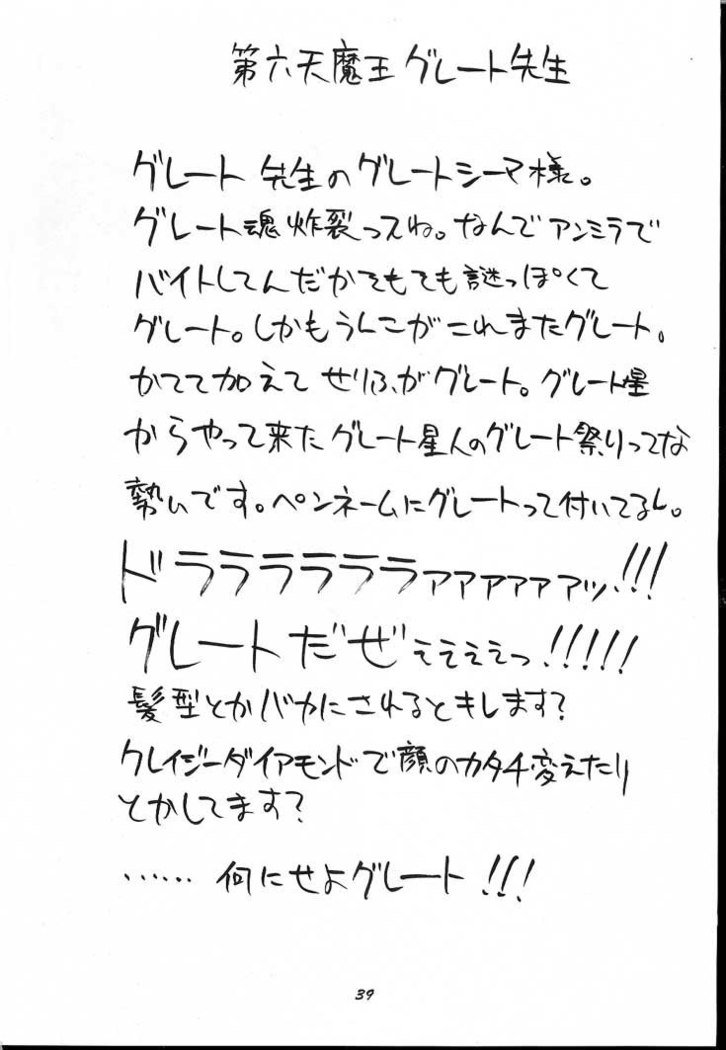 第六天魔王グレート先生
グレート先生のグレートシーマ様。
グレート魂炸裂ってね。なんでアンミラで
バイトしてんだかてもても謎っぽくて
グレート。しかもうんこがこれまたグレート。
かてて加えてせりふがグレート。グレート星
からやって来たグレート星人のグレート祭りってな
勢いです。ペンネームにグレートって付いてるし。
ドララララララァァァァァァッ!!!
グレートだぜぇぇぇぇっ!!!!!
髪型とかバカにされるとキレます?
クレイジーダイアモンドで顔のカタチ変えたり
とかしてます?
……何にせよグレート!!!
39